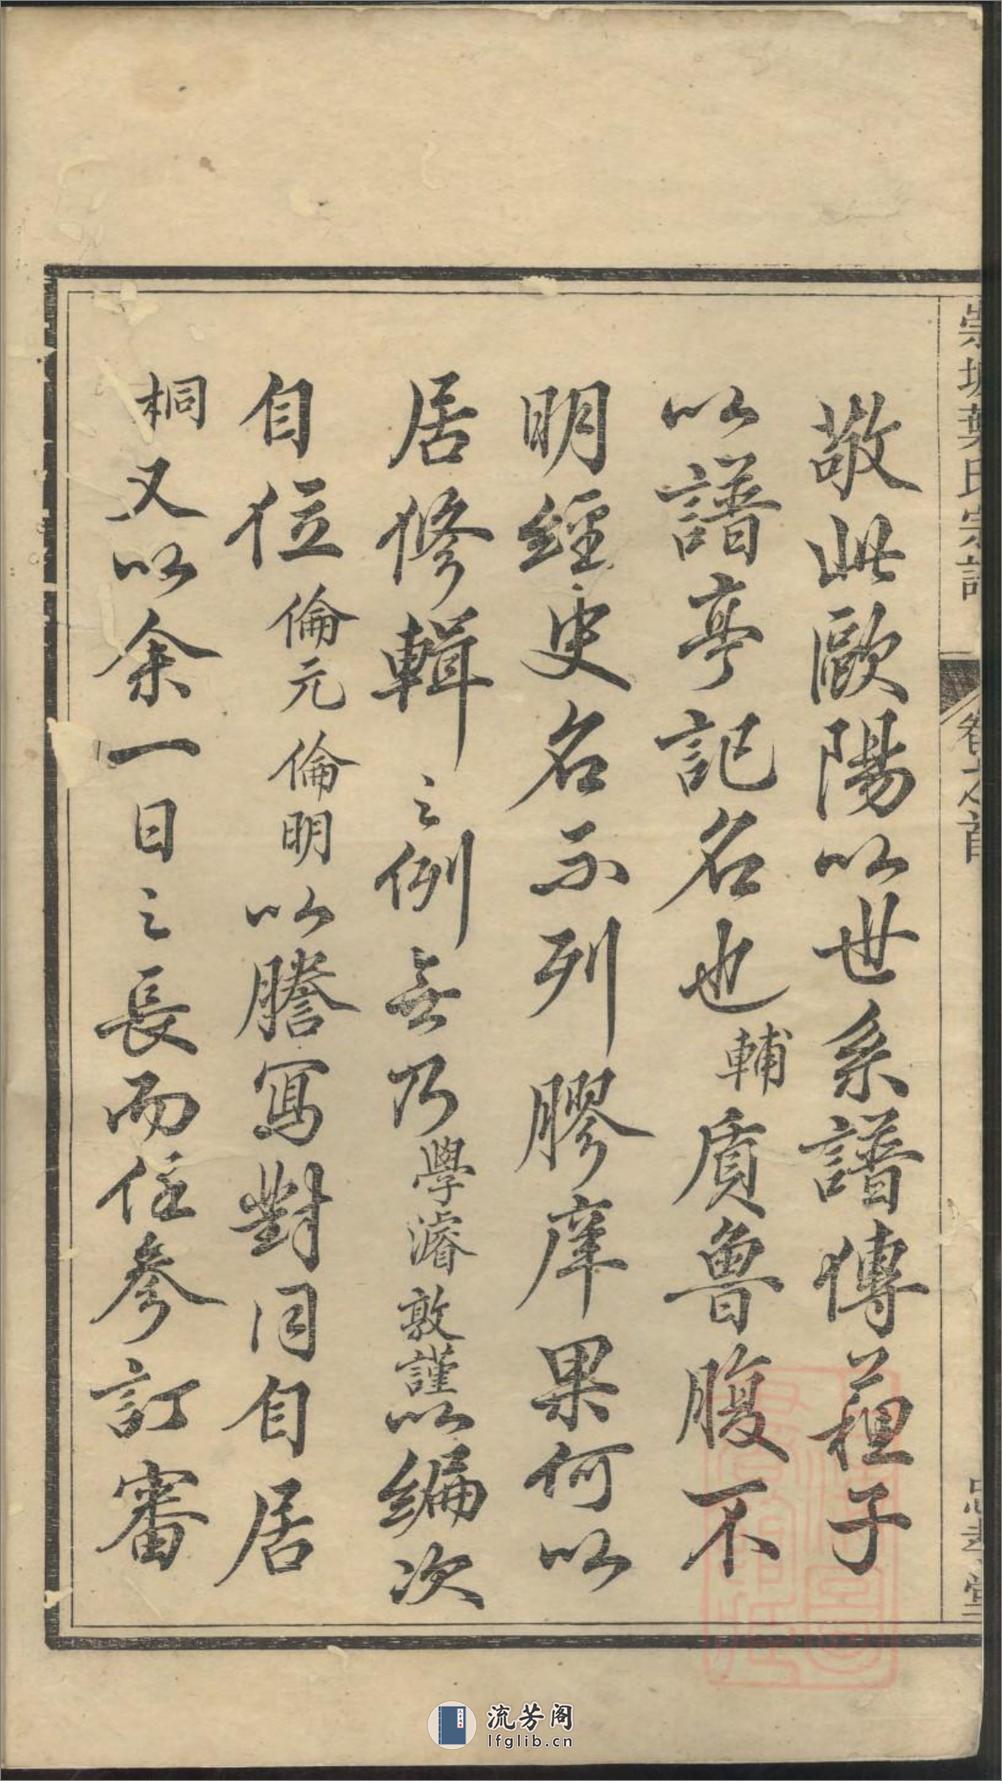 崇城葉氏宗譜 卷之首 忠孝堂
敬此歐陽以世系譜傳蘓子
以譜亭記名也輔質魯腹不
明經史名不列膠庠果何以
居修輯之例無乃學濬敦謹以編次
自位倫元倫明以謄寫對同自居
桐又以余一日之長而任參訂審
流芳阁
lfglib.cn